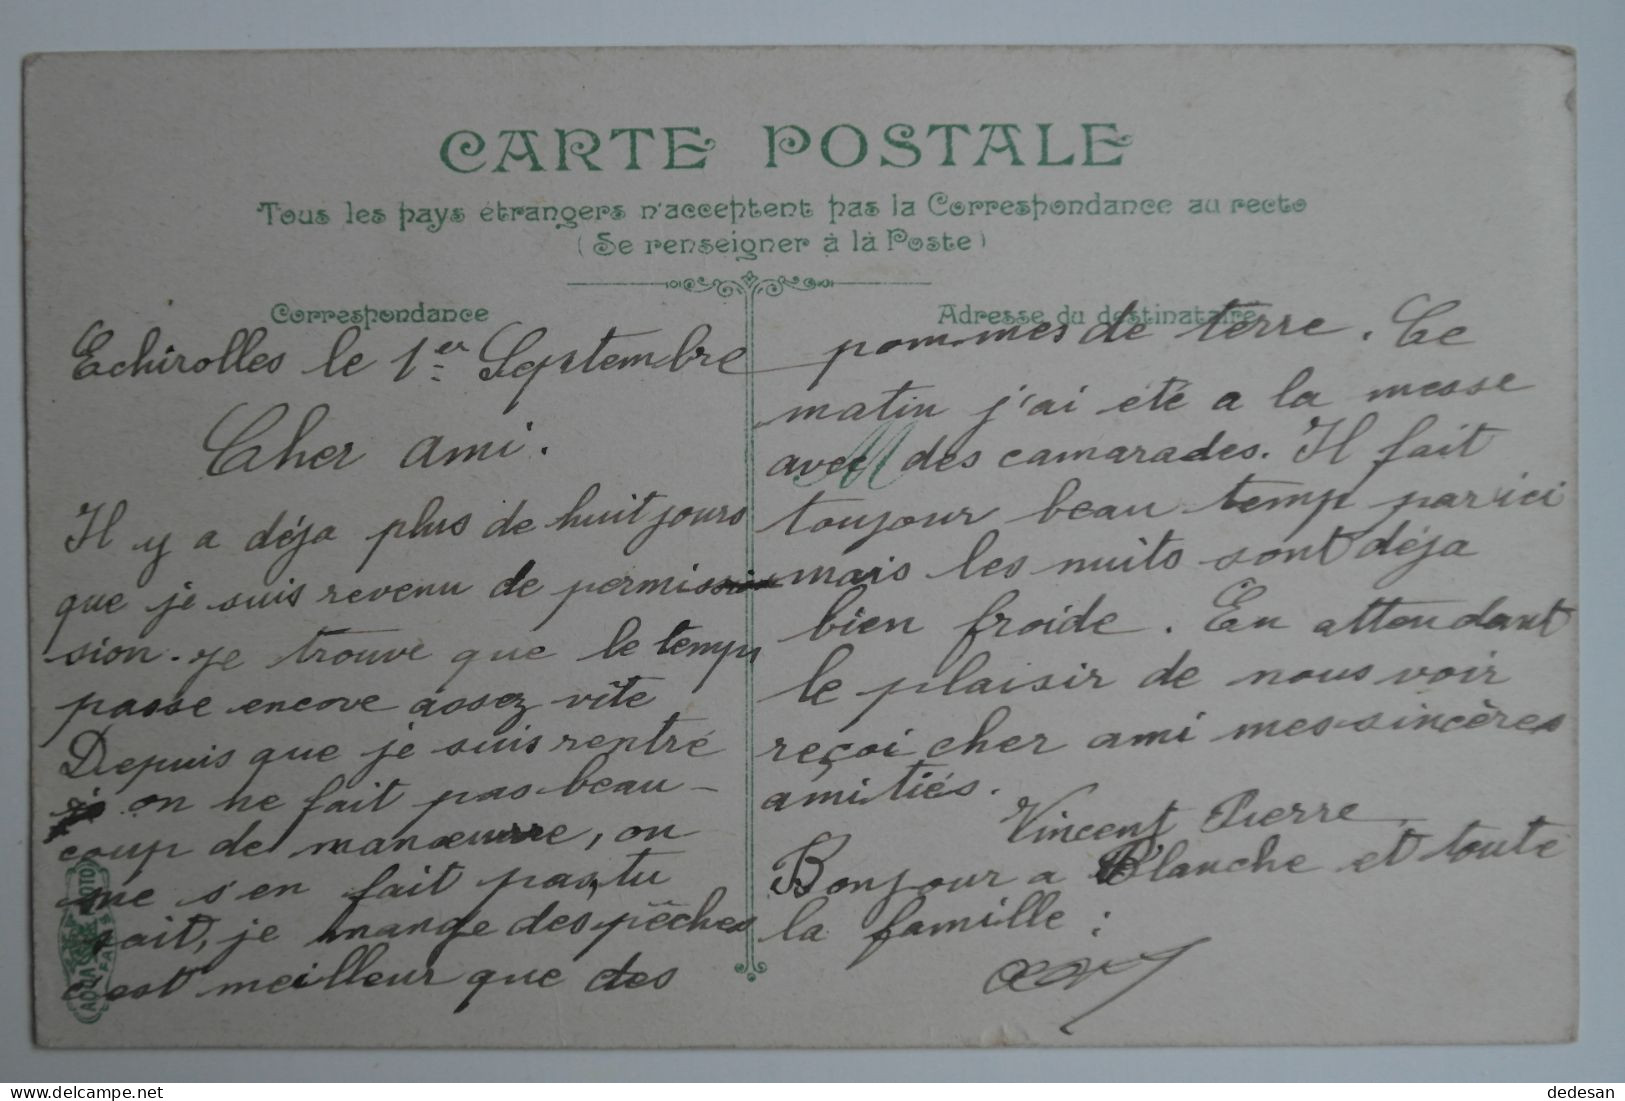 CARTE POSTALE
Tous les pays étrangers n'acceptent pas la Correspondance au recto
(Se renseigner à là Poste)
Correspondance
Echirolles le 1er Septembre
Cher ami.
Il y a déja plus de huit jours
que je suis revenu de permis
sion. je trouve que le temps
passe encore assez vite
Depuis que je suis rentré
on ne fait pas beau-
coup de manœuvre, on
me s'en fait pas, tu
sait, je mange des pêches
c'est meilleur que des
Adresse du destinataire
pommes de terre. Ce
matin j'ai été a la messe
avec des camarades. Il fait
toujour beau temp par ici
mais les nuits sont déja
bien froide. En attendant
le plaisir de nous voir
reçoi cher ami mes sincères
amitiés.
Vincent Pierre
Bonjour a Blanche et toute
la famille :
AQUA PHOTO
dedesan